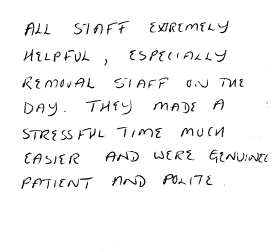 ALL STAFF EXTREMELY
HELPFUL, ESPECIALLY
REMOVAL STAFF ON THE
DAY. THEY MADE A
STRESSFUL TIME MUCH
EASIER AND WERE GENUINE
PATIENT AND POLITE.